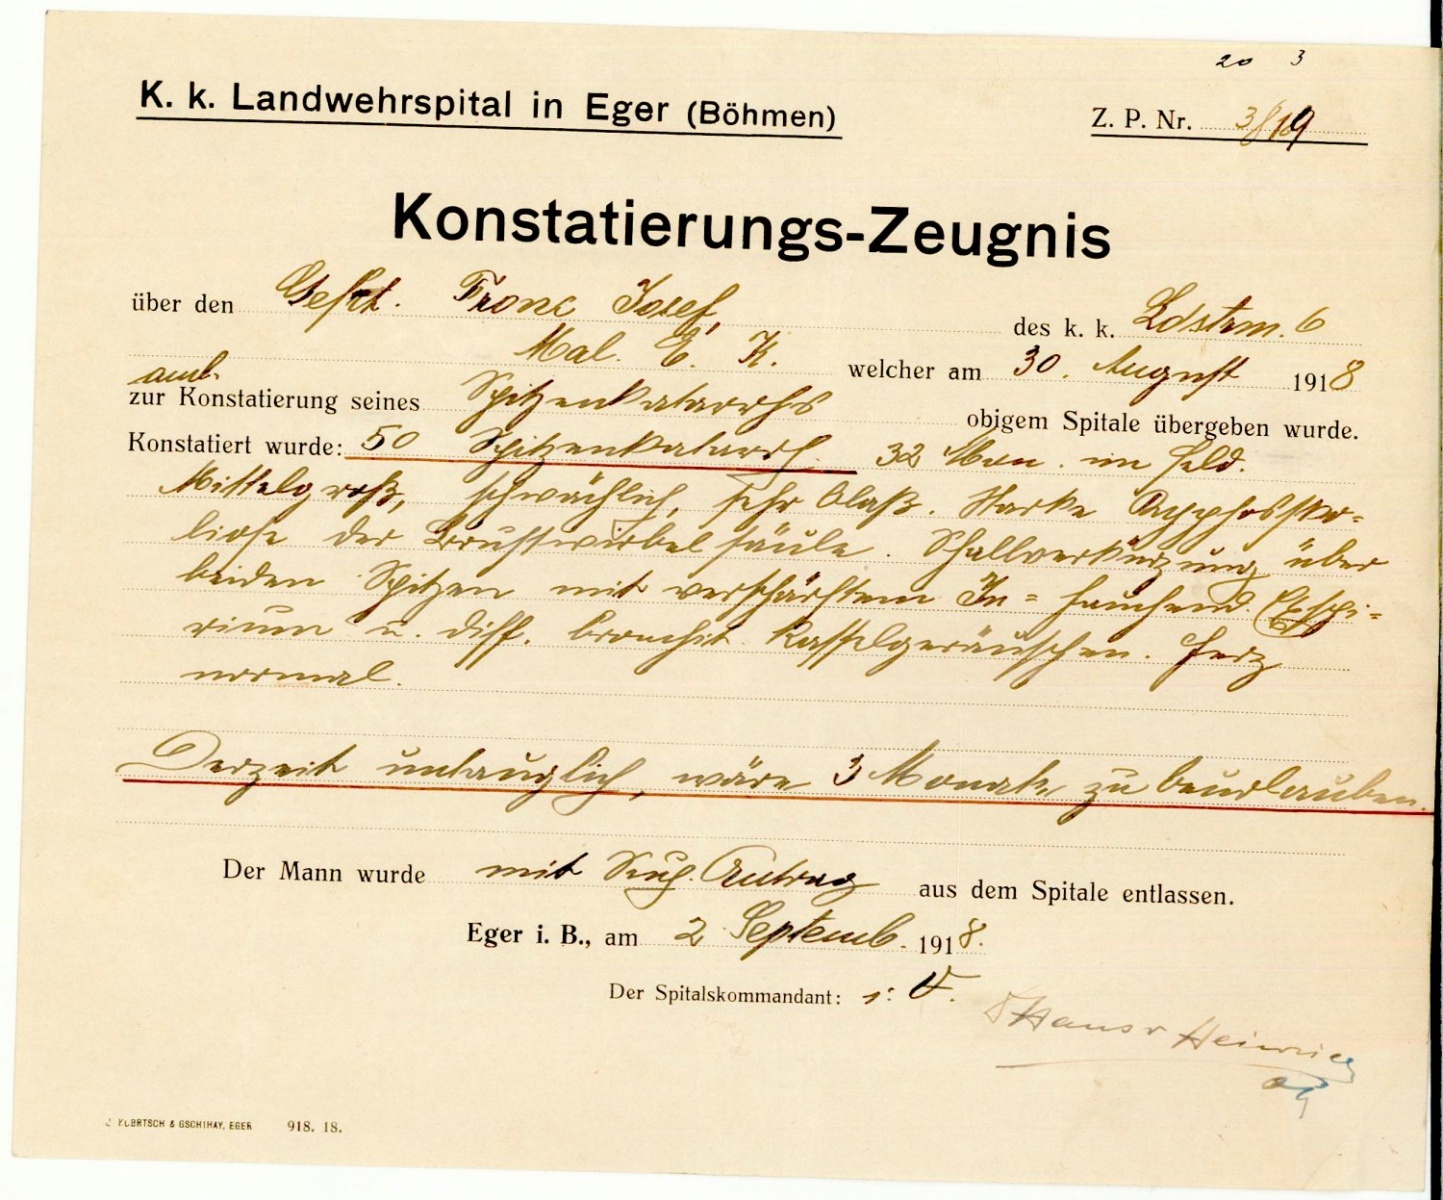 20 3
K. k. Landwehrspital in Eger (Böhmen)
Z. P. Nr. 3/19
Konstatierungs-Zeugnis
über den Gefrt. Franc Josef, des k. k. Ldstrm. 6
Mal. E. K. welcher am 30. August 1918
amb.
zur Konstatierung seines Spitzenkatarrhs obigem Spitale übergeben wurde.
Konstatiert wurde: 50 Spitzenkatarrh. 32 Mon. im Feld.
Mittelgroß, schwächlich, sehr blaß. Starke Kyphosko=
liose der Brustwirbelsäule. Schallverkürzung über
beiden Spitzen mit verschärftem In= hauchend. Exspi=
rium u. diff. bronchit. Rasselgeräuschen. Herz
normal.
Derzeit untauglich, wäre 3 Monate zu beurlauben.
Der Mann wurde mit Antrag aus dem Spitale entlassen.
Eger i. B., am 2 Septemb. 1918.
Der Spitalskommandant: i. V.
GSCHIHAY, EGER 918. 18.